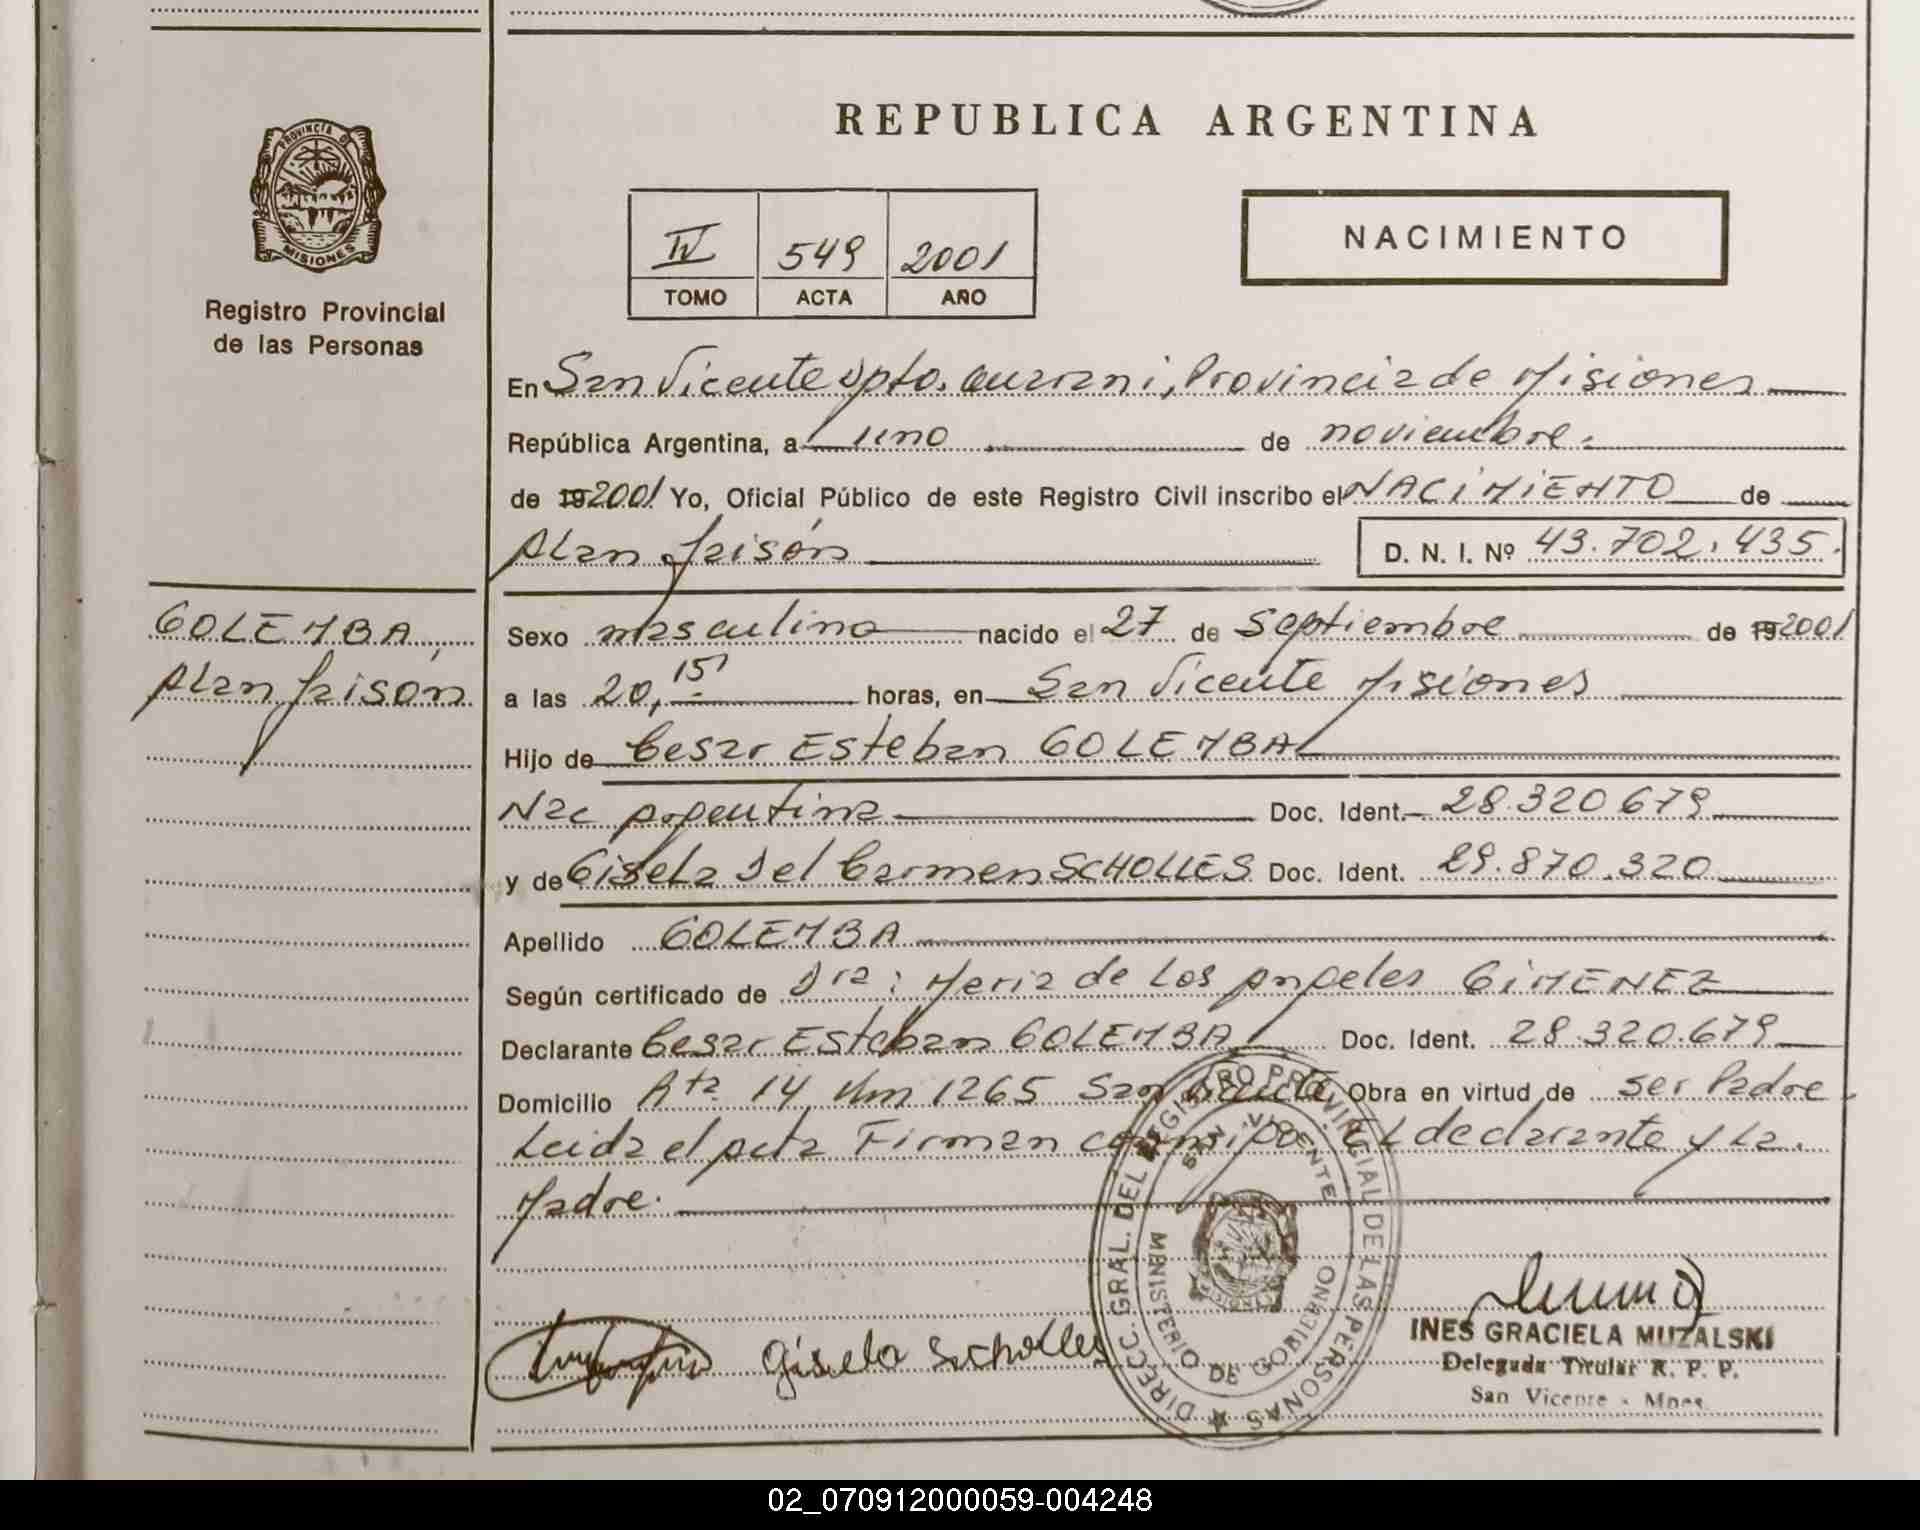 REPUBLICA ARGENTINA
PROVINCIA D
MISIONES
Registro Provincial
de las Personas
IV 549 2001
TOMO ACTA AÑO
NACIMIENTO
En San Vicente Dpto. Guarani, Provincia de Misiones
República Argentina, a uno de noviembre.
de 19 2001 Yo, Oficial Público de este Registro Civil inscribo el NACIMIENTO de
Alan Jaisón
D. N. I. Nº 43.702.435.
GOLEMBA,
Alan Jaisón
Sexo masculino nacido el 27 de Septiembre de 19 2001
a las 20,15 horas, en San Vicente Misiones
Hijo de Cesar Esteban GOLEMBA
Nac Argentina Doc. Ident. 28.320.679
y de Gisela Del Carmen SCHOLLES Doc. Ident. 29.870.320
Apellido GOLEMBA
Según certificado de Dra: Maria de Los Angeles GIMENEZ
Declarante Cesar Esteban GOLEMBA Doc. Ident. 28.320.679
Domicilio Rta 14 Km 1265 San Vicente Obra en virtud de ser Padre
Leida el acta Firman conmigo. El declarante y La.
Madre.
DIRECC. GRAL. DEL REGISTRO PROVINCIAL DE LAS PERSONAS
SAN VICENTE
MINISTERIO DE GOBIERNO
Gisela Scholles
INES GRACIELA MUZALSKI
Delegada Titular R. P. P.
San Vicente - Mnes.
02_070912000059-004248